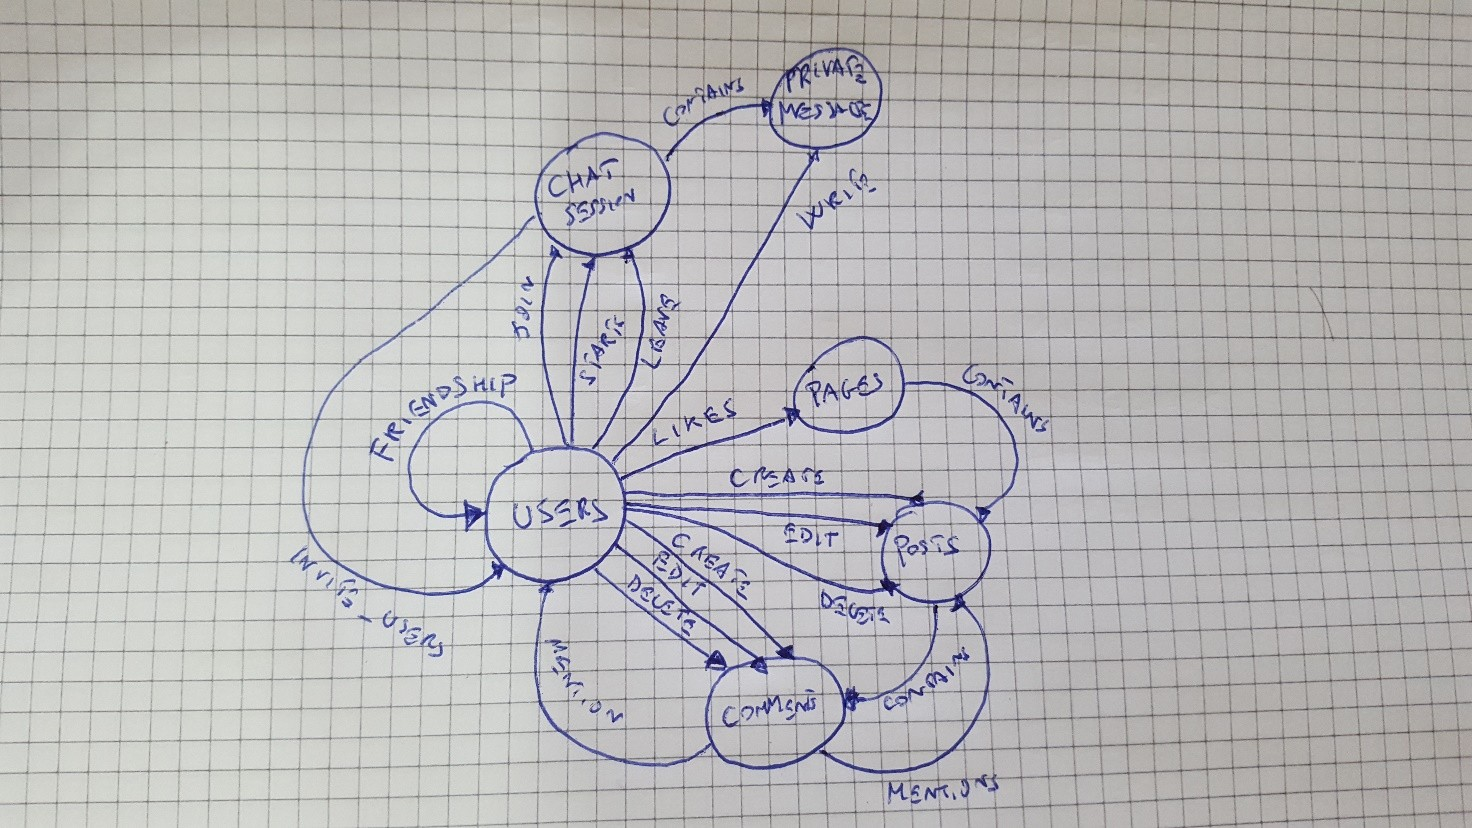 PRIVATE
MESSAGE
CONTAINS
CHAT
SESSION
WRITE
JOIN
STARTS
LEAVE
FRIENDSHIP
LIKES
PAGES
CONTAINS
CREATE
USERS
EDIT
POSTS
CREATE
EDIT
DELETE
DELETE
INVITE_USERS
MENTION
CONTAINS
COMMENTS
MENTIONS